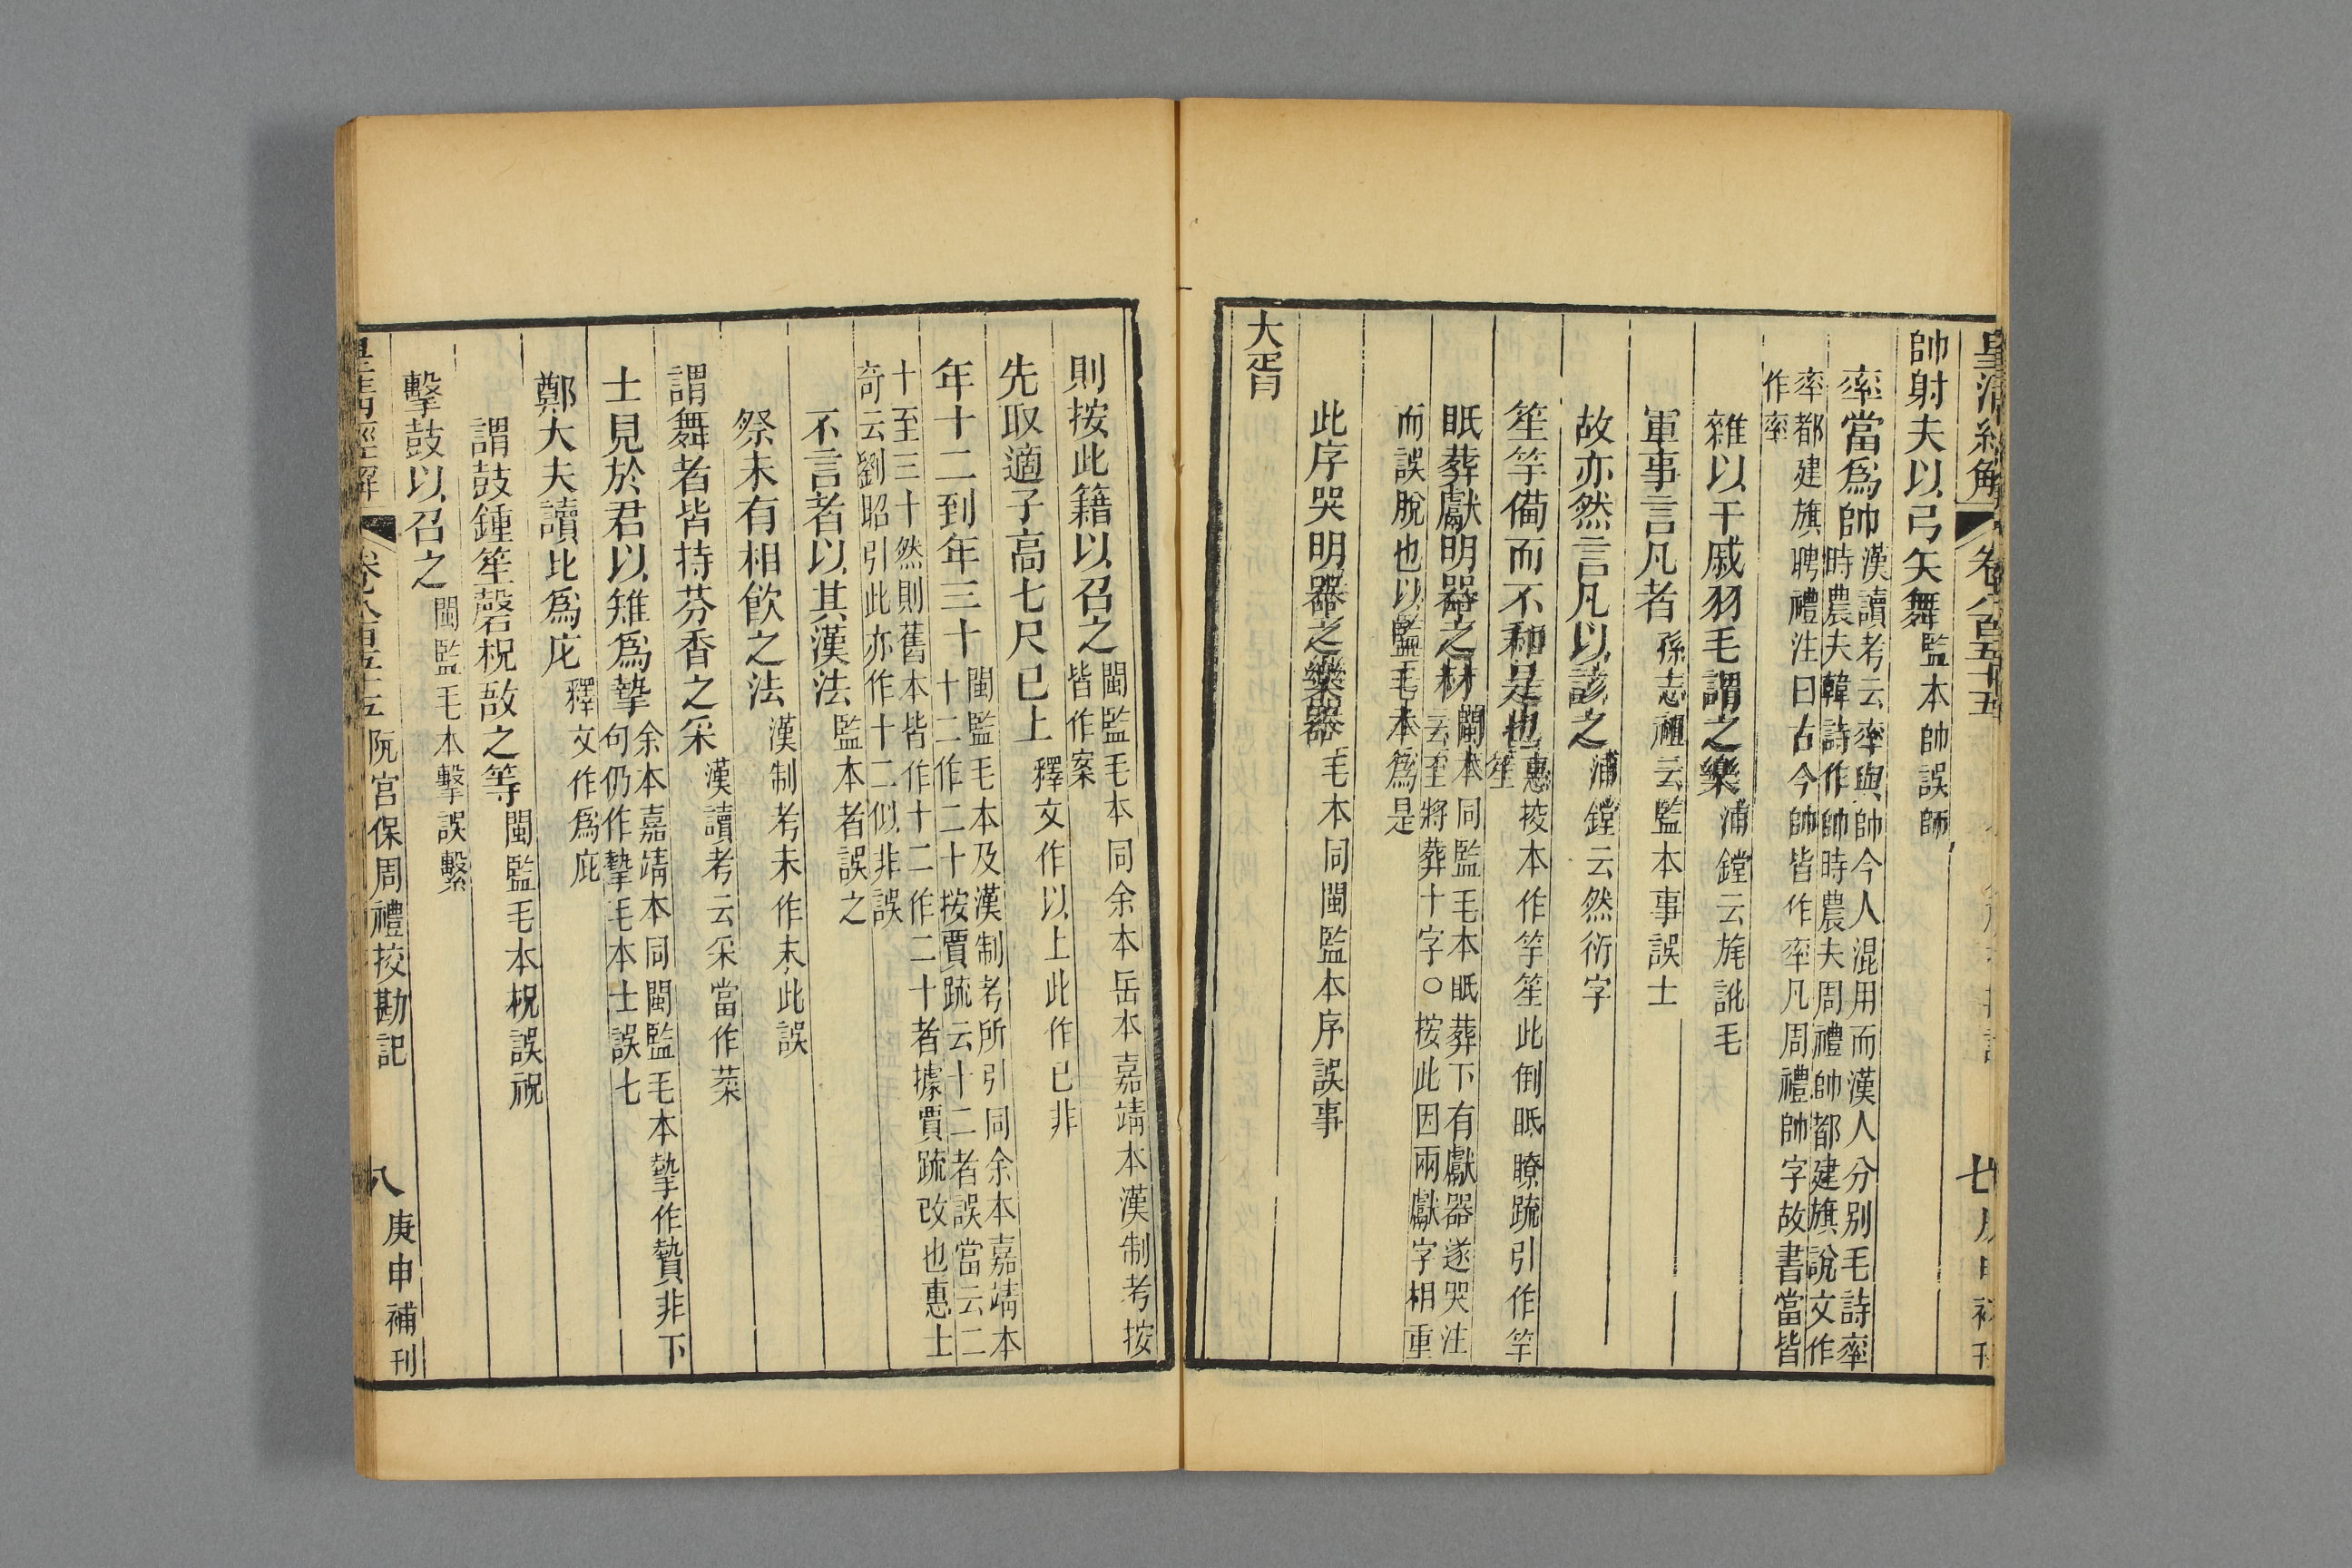 皇清經解 卷八百五十五
帥射夫以弓矢舞監本帥誤師
率當爲帥漢讀考云率與帥今人混用而漢人分别毛詩率
時農夫韓詩作帥時農夫周禮帥都建旗說文作
率都建旗聘禮注曰古今帥皆作率凡周禮帥字故書當皆
作率
雜以干戚羽毛謂之樂浦鏜云旄訛毛
軍事言凡者孫志祖云監本事誤士
故亦然言凡以該之浦鏜云然衍字
笙竽備而不和是也惠挍本作竽笙此倒眡瞭疏引作竽
笙
眂葬獻明器之材閩本同監毛本眂葬下有獻器遂哭注
云至將葬十字○按此因兩獻字相重
而誤脫也以監毛本爲是
此序哭明器之樂器毛本同閩監本序誤事
大胥
則按此籍以召之閩監毛本同余本岳本嘉靖本漢制考按
皆作案
先取適子高七尺已上釋文作以上此作已非
年十二到年三十閩監毛本及漢制考所引同余本嘉靖本
十二作二十按賈疏云十二者誤當云二
十至三十然則舊本皆作十二作二十者據賈疏改也惠士
奇云劉昭引此亦作十二似非誤
不言者以其漢法監本者誤之
祭未有相飮之法漢制考未作末此誤
謂舞者皆持芬香之采漢讀考云采當作菜
士見於君以雉爲摯余本嘉靖本同閩監毛本摯作贄非下
句仍作摯毛本士誤七
鄭大夫讀比爲庀釋文作爲庇
謂鼓鍾笙磬柷敔之等閩監毛本柷誤祝
擊鼓以召之閩監毛本擊誤繫
卷八百五十五 阮宫保周禮挍勘記 八 庚申補刊